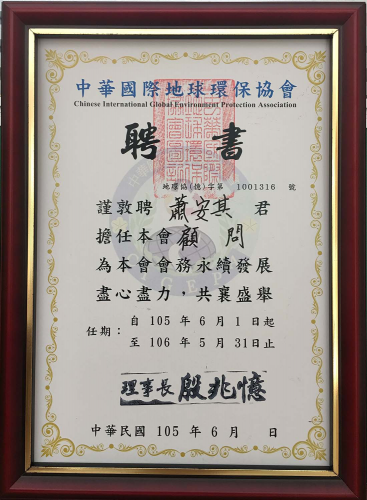 中華國際地球環保協會
Chinese International Global Environment Protection Association
聘書
地環協(億)字第 1001316 號
謹敦聘 蕭安其 君
擔任本會顧問
為本會會務永續發展
盡心盡力，共襄盛舉
任期：自 105 年 6 月 1 日起
至 106 年 5 月 31 日止
理事長 殷兆億
中華民國 105 年 6 月 日